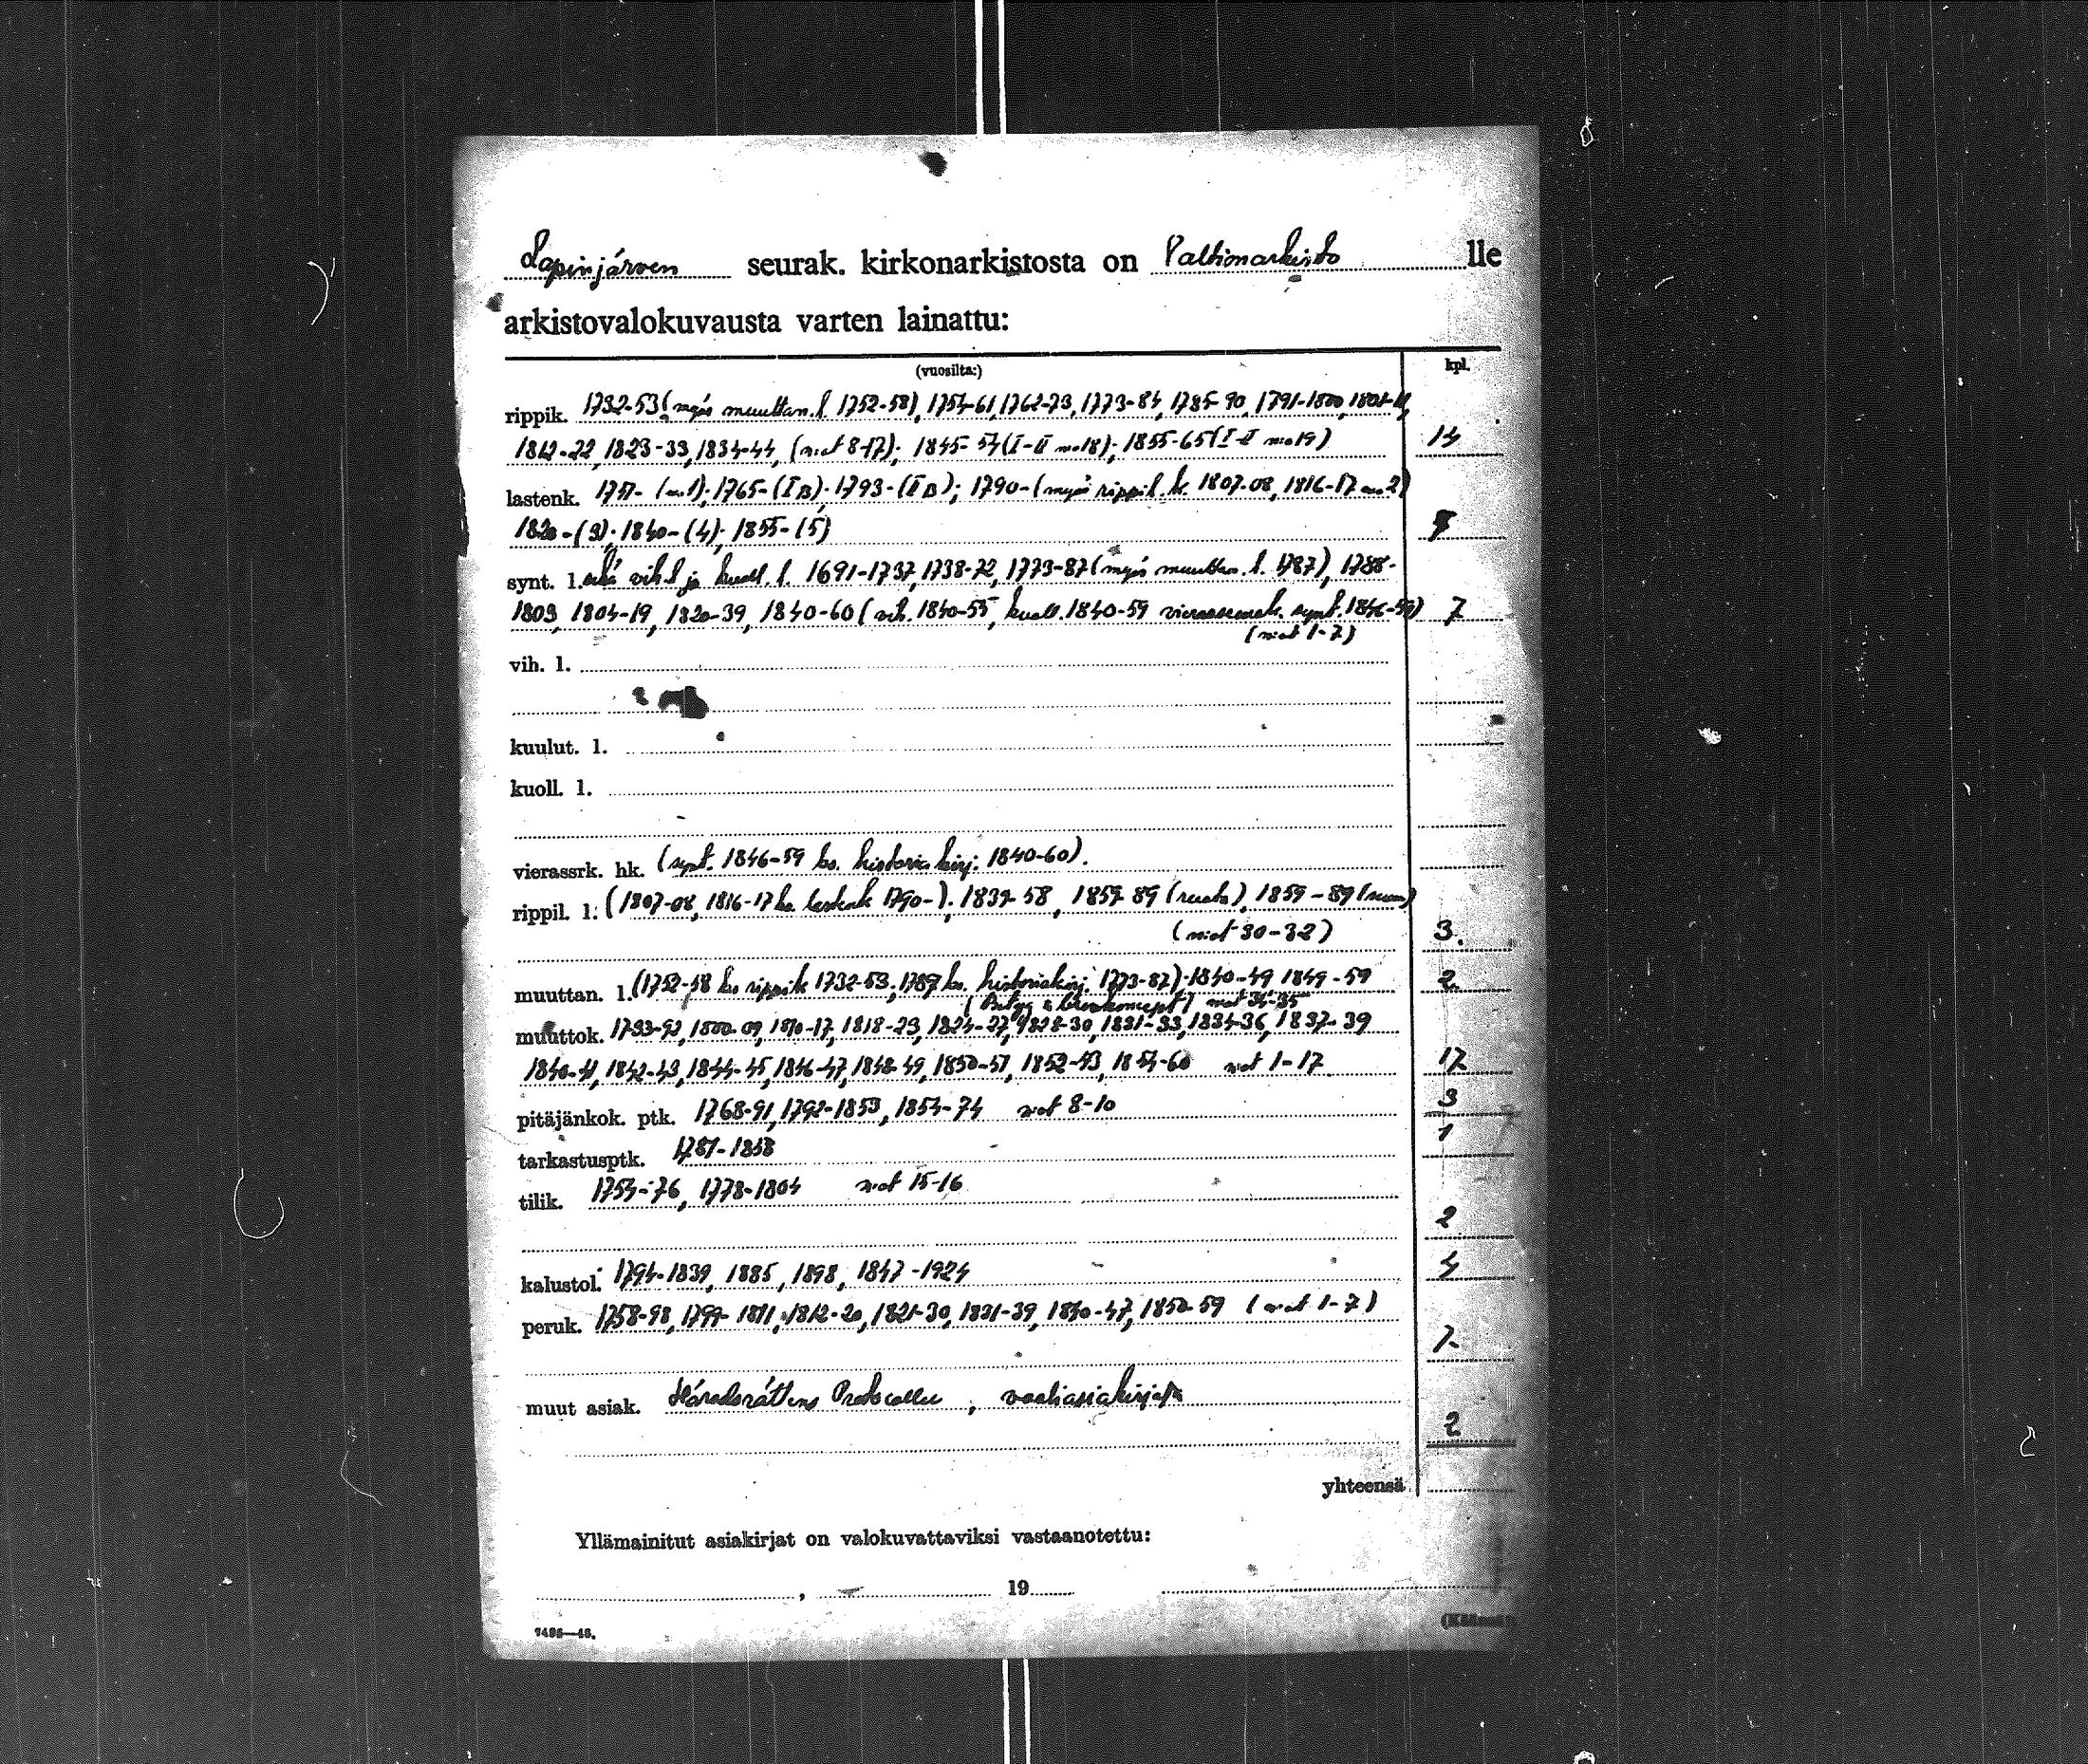 Lapinjärven seurak. kirkonarkistosta on Valtionarkisto lle
arkistovalokuvausta varten lainattu:
(vuosilta:) kpl.
rippik. 1732-53 (myös muuttan. l. 1752-58), 1754-61, 1762-73, 1773-84, 1785-90, 1791-1800, 1801-11,
1812-22, 1823-33, 1834-44, (n:ot 8-17); 1845-54 (I-II n:o 18); 1855-65 (I-II n:o 19) 14
lastenk. 1751- (n:o 1); 1765- (I B); 1793- (II B); 1790- (myös rippil. k. 1807-08, 1816-17 n:o 2)
1820- (3); 1840- (4); 1855- (5)
synt. l. sekä vih. l. ja kuoll. l. 1691-1737, 1738-72, 1773-87 (myös muuttan. l. 1787), 1788-
1803, 1804-19, 1820-39, 1840-60 (vih. 1840-55, kuoll. 1840-59 vierasseurak. synt. 1846-59) 7
(n:ot 1-7)
vih. l.
kuulut. l.
kuoll. l.
vierassrk. hk. (synt. 1846-59 ks. historiakirj. 1840-60).
rippil. l. (1807-08, 1816-17 ks. lastenk 1790-); 1839-58, 1859-89 (ruots), 1859-89 (suom)
(n:ot 30-32) 3.
muuttan. l. (1752-58 ks rippik 1732-53; 1787 ks. historiakirj. 1773-87); 1840-49 1849-59 2
(Betyg & brevkoncept) n:ot 34-35
muuttok. 1793-92, 1800-09, 1810-17, 1818-23, 1824-27, 1828-30, 1831-33, 1834-36, 1837-39
1840-41, 1842-43, 1844-45, 1846-47, 1848-49, 1850-51, 1852-53, 1854-60 n:ot 1-17 17
pitäjänkok. ptk. 1768-91, 1792-1853, 1854-74 n:ot 8-10 3
tarkastusptk. 1781-1858 1
tilik. 1754-76, 1778-1804 n:ot 15-16
2
kalustol. 1794-1839, 1885, 1898, 1847-1924 4
peruk. 1758-98, 1799-1811, 1812-20, 1821-30, 1831-39, 1840-47, 1850-59 (n:ot 1-7)
7
muut asiak. Häradsrättens Protocoller, vaaliasiakirjat
2
yhteensä
Yllämainitut asiakirjat on valokuvattaviksi vastaanotettu:
, 19
7486—46.